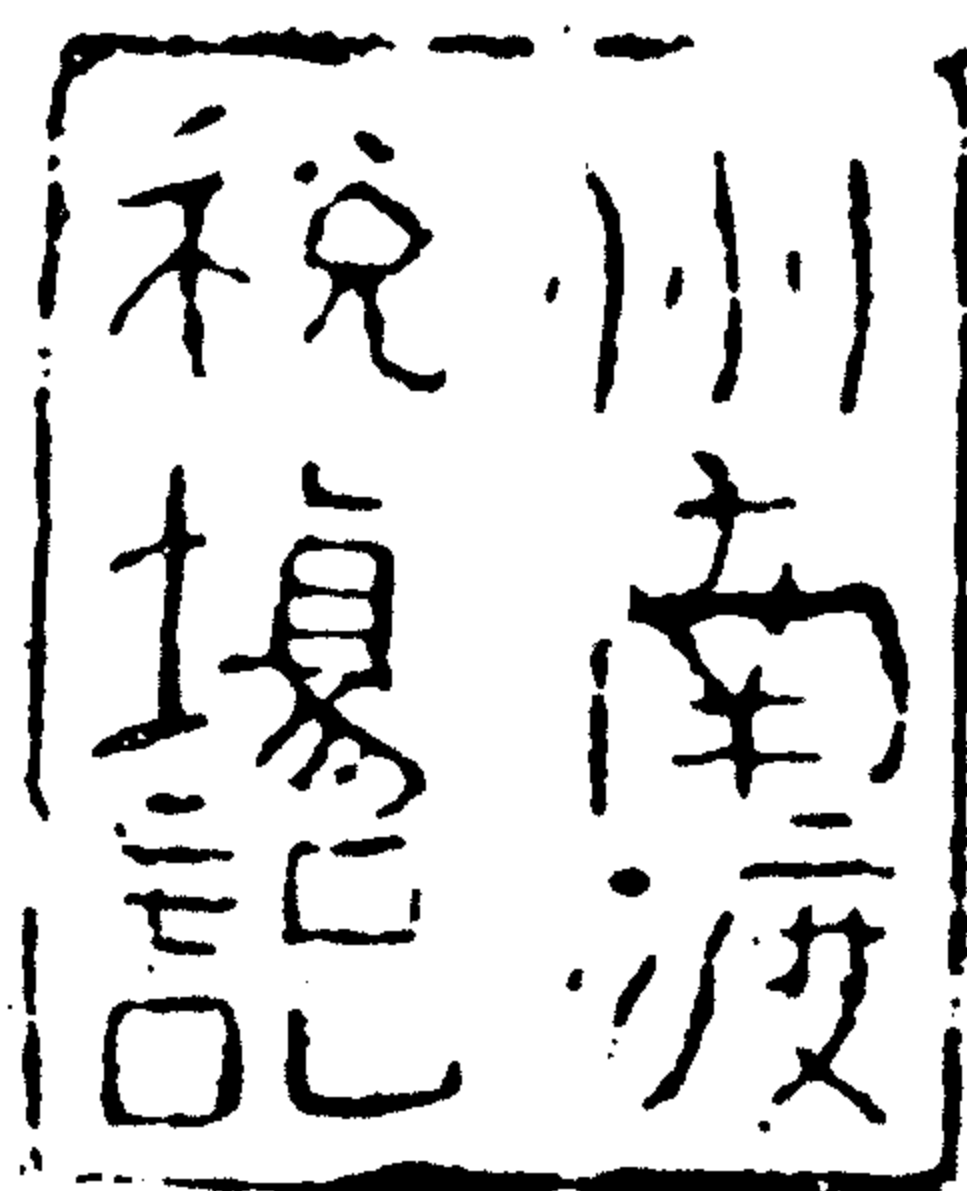 州南渡
税場記